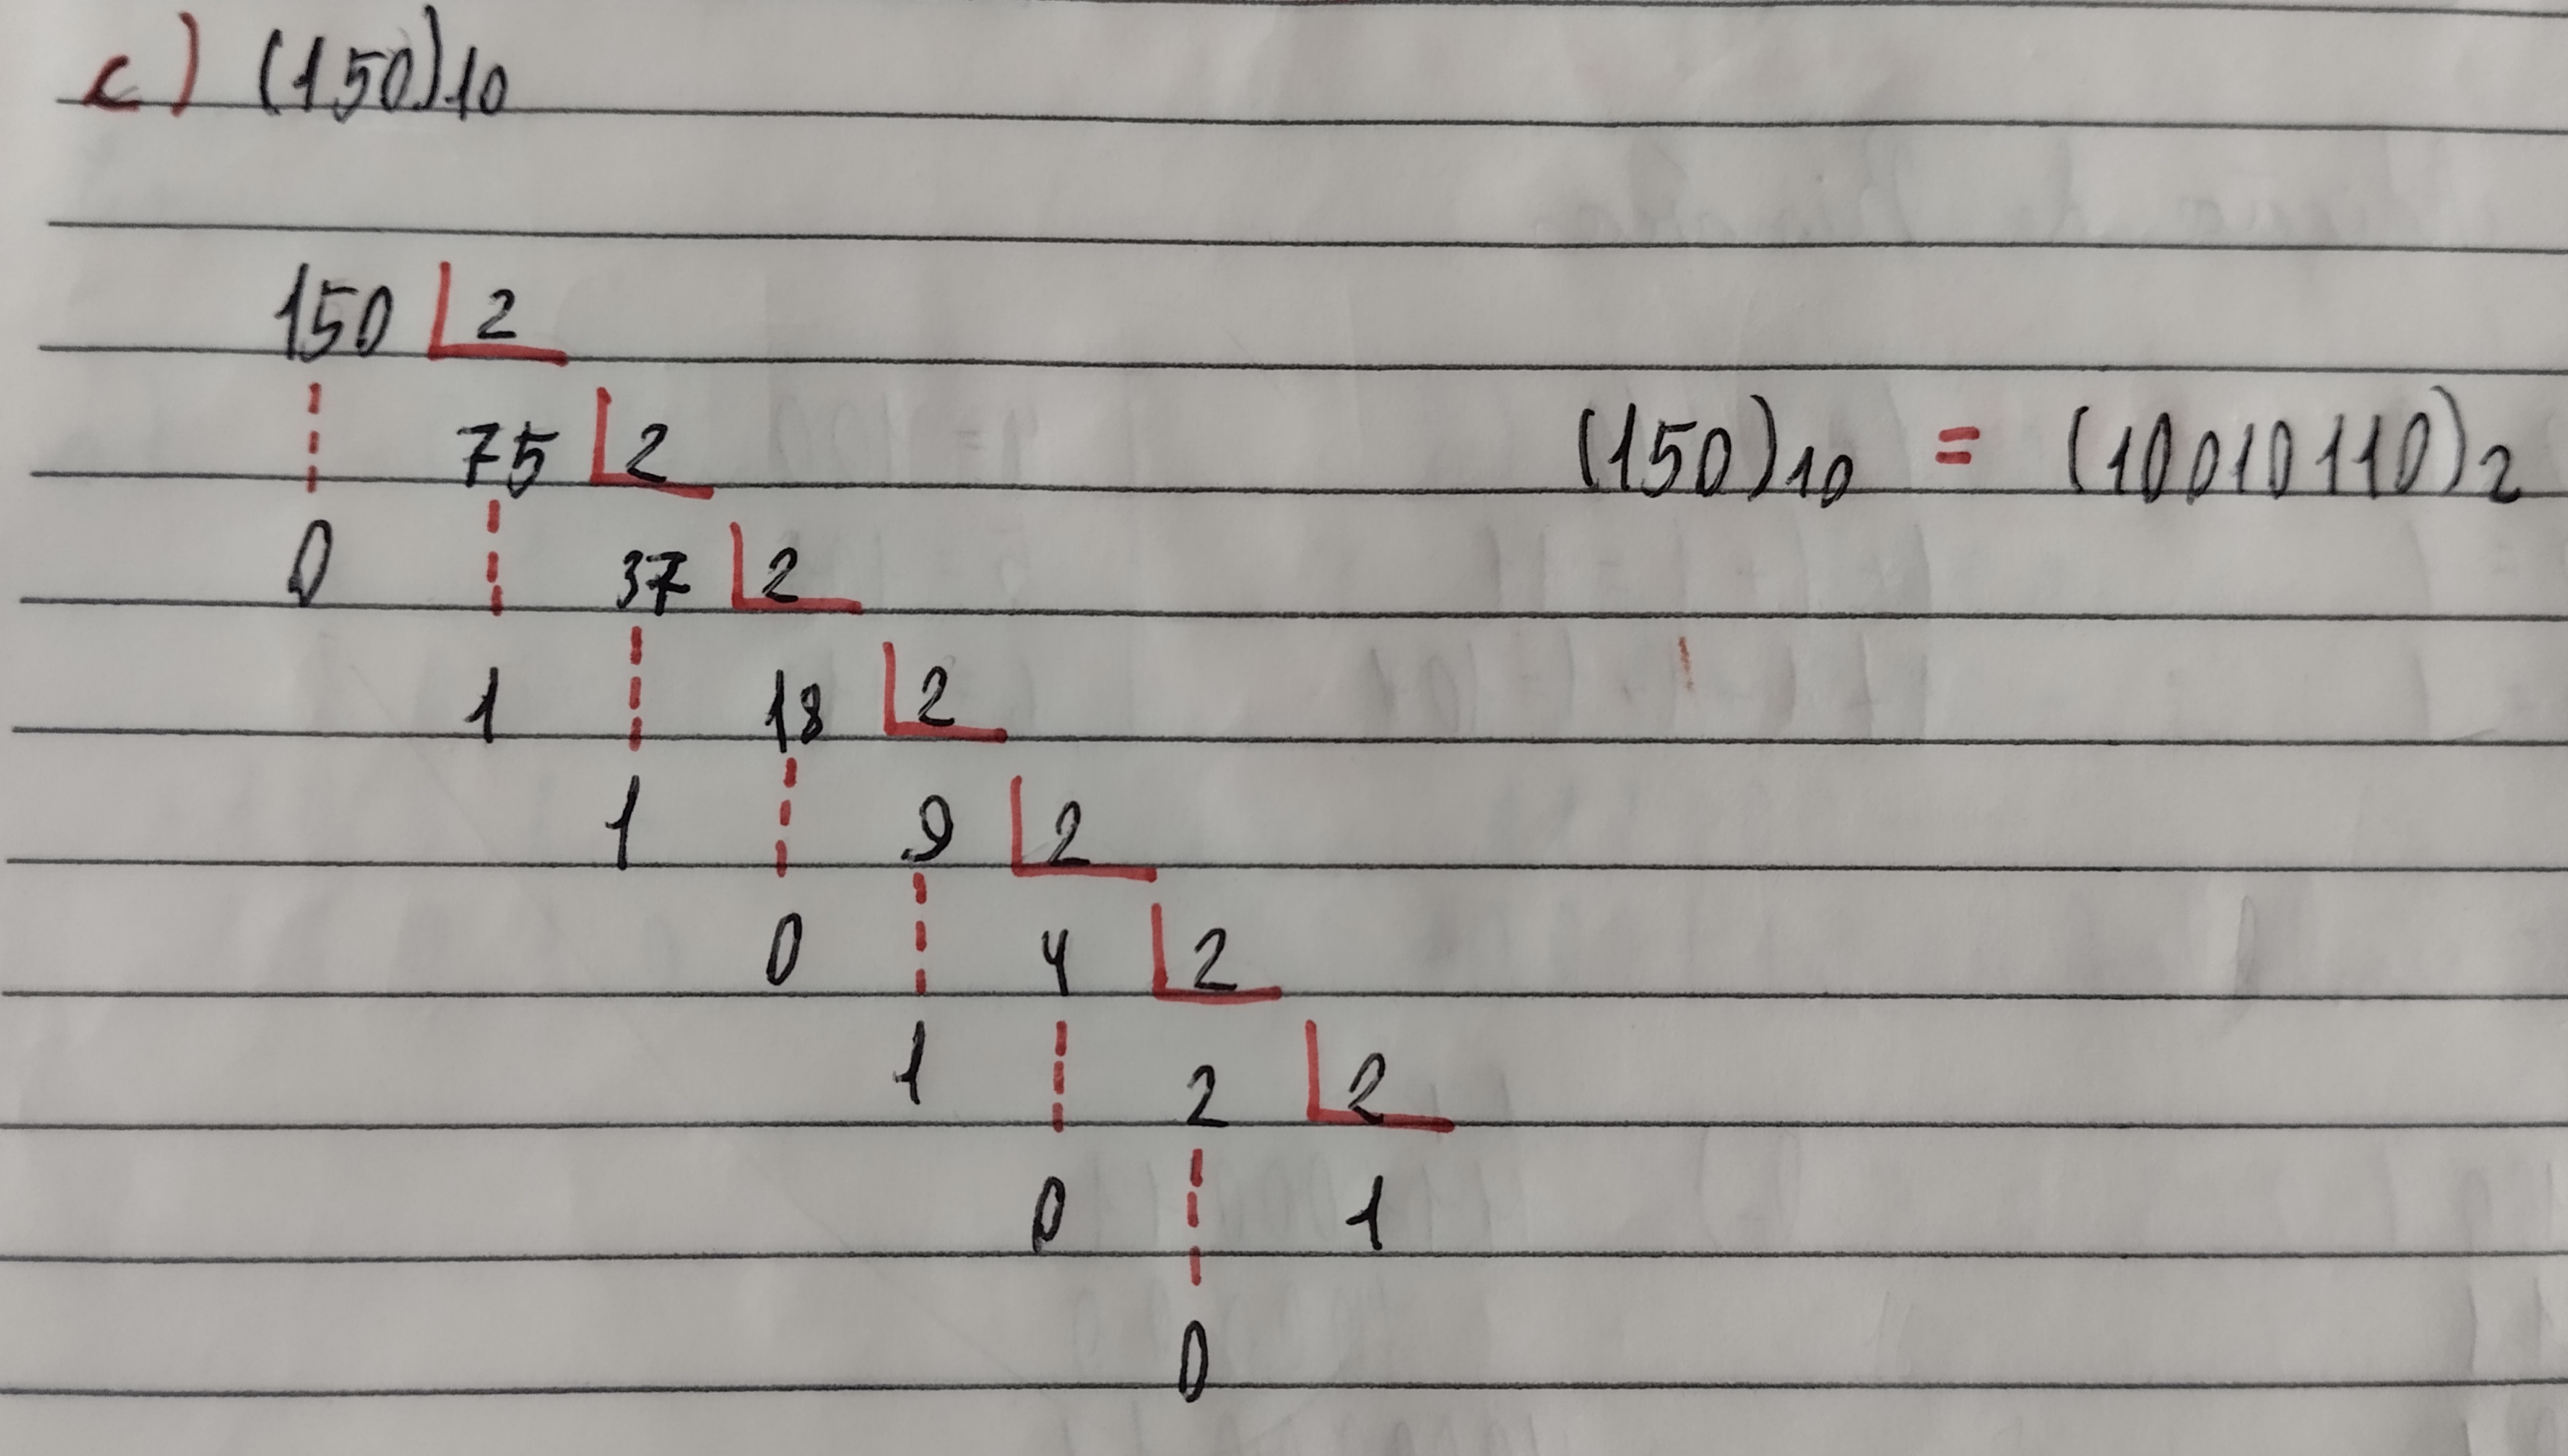 c) (150)10
150 2
75 2 (150)10 = (10010110)2
0 37 2
1 18 2
1 9 2
0 4 2
1 2 2
0 1
0